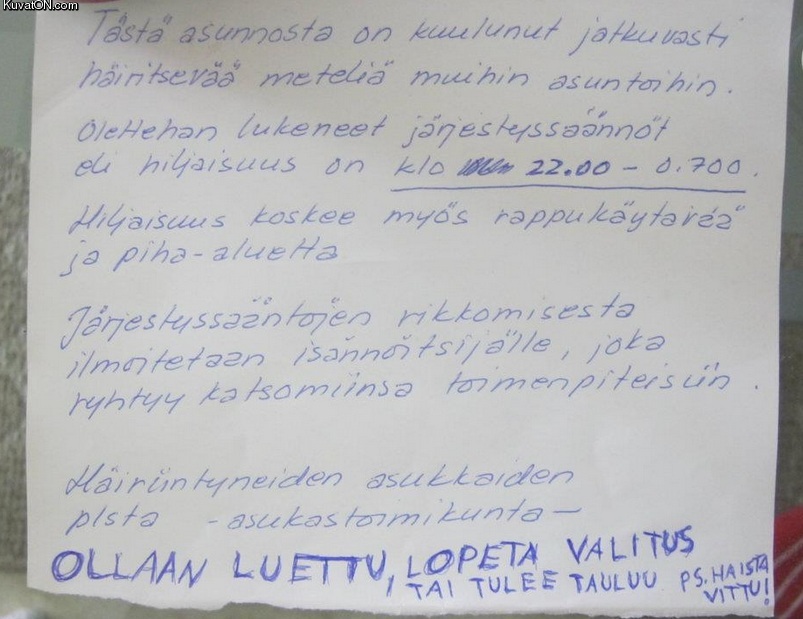 KuvatON.com
Tästä asunnosta on kuulunut jatkuvasti
häiritsevää meteliä muihin asuntoihin.
Olettehan lukeneet järjestyssäännöt
eli hiljaisuus on klo 22.00 - 0.700.
Hiljaisuus koskee myös rappukäytävää
ja piha-aluetta
Järjestyssääntöjen rikkomisesta
ilmoitetaan isännöitsijälle, joka
ryhtyy katsomiinsa toimenpiteisiin.
Häiriintyneiden asukkaiden
plsta -asukastoimikunta-
OLLAAN LUETTU, LOPETA VALITUS
TAI TULEE TAULUU PS. HAISTA
VITTU!